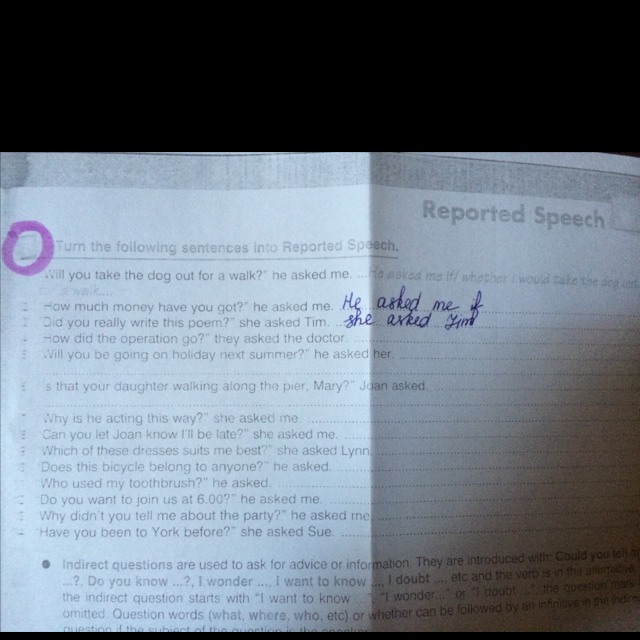 Reported Speech
Turn the following sentences into Reported Speech.
Will you take the dog out for a walk?" he asked me. ...he asked me if/ whether I would take the dog out
a walk....
How much money have you got?" he asked me. He asked me if
Did you really write this poem?" she asked Tim. she asked Tim
How did the operation go?" they asked the doctor.
Will you be going on holiday next summer?" he asked her.
Is that your daughter walking along the pier, Mary?" Joan asked.
Why is he acting this way?" she asked me.
Can you let Joan know I'll be late?" she asked me.
Which of these dresses suits me best?" she asked Lynn.
Does this bicycle belong to anyone?" he asked.
Who used my toothbrush?" he asked.
Do you want to join us at 6.00?" he asked me.
Why didn't you tell me about the party?" he asked me.
Have you been to York before?" she asked Sue.
● Indirect questions are used to ask for advice or information. They are introduced with: Could you tell
...?, Do you know ...?, I wonder ..., I want to know ..., I doubt ... etc and the verb is in the affirmative
the indirect question starts with "I want to know ...", "I wonder..." or "I doubt ...", the question mark
omitted. Question words (what, where, who, etc) or whether can be followed by an infinitive in the indirect
question if the subject of the question is the